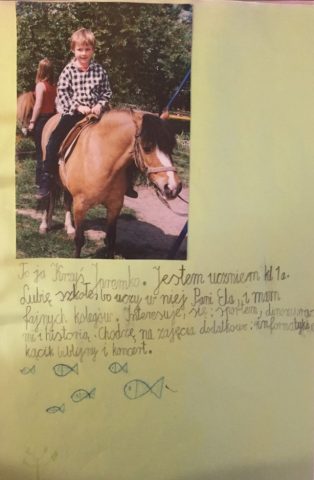 To ja Krzyś Jaremko. Jestem uczniem kl 1a.
Lubię szkołę, bo uczy w niej Pani Ela i mam
fajnych kolegów. Interesuję się: sportem, dinozaura
mi i historią. Chodzę na zajęcia dodatkowe: informatykę,
kącik biblijny i koncert.